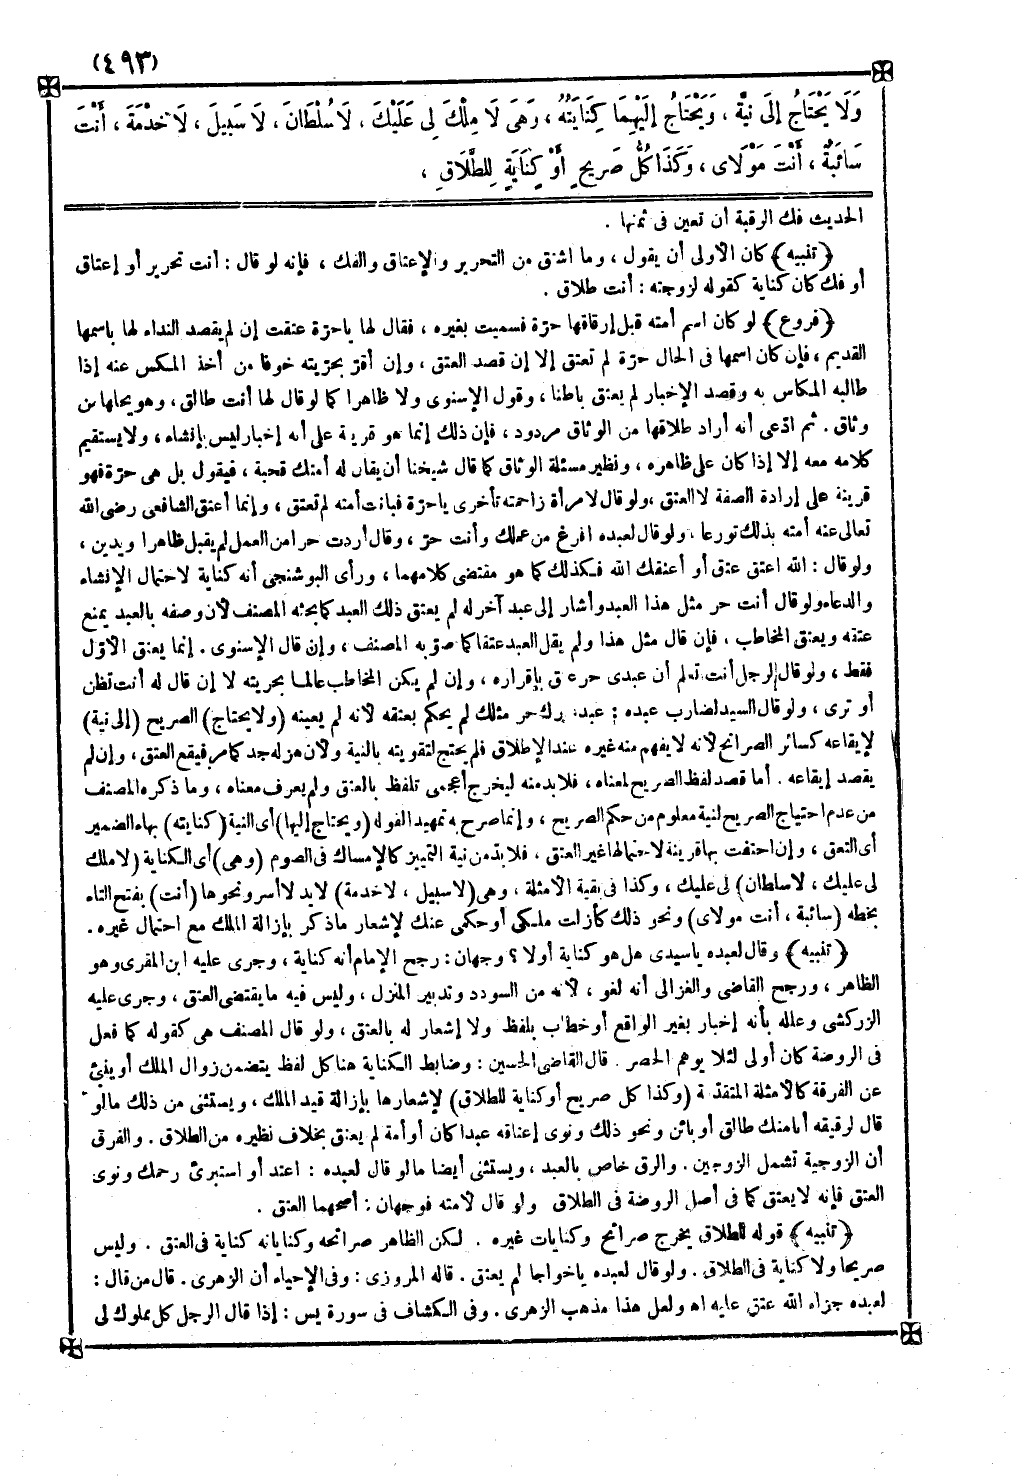 (٤٩٣)
وَلَا يَحْتَاجُ إِلَى نِيَّةٍ ، وَيَحْتَاجُ إِلَيْهِمَا كِنَايَتُهُ ، وَهِيَ لَا مِلْكَ لِى عَلَيْكَ ، لَا سُلْطَانَ ، لَا سَبِيلَ ، لَا خِدْمَةَ ، أَنْتَ
سَائِبَةٌ ، أَنْتَ مَوْلَاى ، وَكَذَا كُلُّ صَرِيحٍ أَوْ كِنَايَةٍ لِلطَّلَاقِ ،
الحديث فك الرقبة أن تعين فى ثمنها .
﴿تنبيه﴾ كان الأولى أن يقول ، وما اشتق من التحرير والإعتاق والفك ، فإنه لو قال : أنت تحرير أو إعتاق
أو فك كان كناية كقوله لزوجته : أنت طلاق .
﴿فروع﴾ لو كان اسم أمته قبل إرقاقها حرّة فسميت بغيره ، فقال لها ياحرّة عتقت إن لم يقصد النداء لها باسمها
القديم ، فإن كان اسمها فى الحال حرّة لم تعتق إلا إن قصد العتق ، وإن أقرّ بحرّيته خوفا من أخذ المكس عنه إذا
طالبه المكاس به وقصد الإخبار لم يعتق باطنا ، وقول الإسنوى ولا ظاهرا كما لو قال لها أنت طالق ، وهو يحلها من
وثاق . ثم ادّعى أنه أراد طلاقها من الوثاق مردود ، فإن ذلك إنما هو قرينة على أنه إخبار ليس بإنشاء ، ولا يستقيم
كلامه معه إلا إذا كان على ظاهره ، ونظير مسئلة الوثاق كما قال شيخنا أن يقال له أمتك قحبة ، فيقول بل هى حرّة فهو
قرينة على إرادة الصفة لا العتق ، ولو قال لامرأة زاحمته تأخرى ياحرّة فبانت أمته لم تعتق ، وإنما أعتق الشافعى رضى الله
تعالى عنه أمته بذلك تورعا ، ولو قال لعبده افرغ من عملك وأنت حرّ ، وقال أردت حرا من العمل لم يقبل ظاهرا ويدين ،
ولو قال : الله أعتق عتق أو أعتقك الله فكذلك كما هو مقتضى كلامهما ، ورأى البوشنجى أنه كناية لاحتمال الإنشاء
والدعاء ولو قال أنت حر مثل هذا العبد وأشار إلى عبد آخر له لم يعتق ذلك العبد كما بحثه المصنف لأن وصفه بالعبد يمنع
عتقه ويعتق المخاطب ، فإن قال مثل هذا ولم يقل العبد عتقا كما صوّبه المصنف ، وإن قال الإسنوى . إنما يعتق الأوّل
فقط ، ولو قال لرجل أنت تعلم أن عبدى حر عتق بإقراره ، وإن لم يكن المخاطب عالما بحريته لا إن قال له أنت تظن
أو ترى ، ولو قال السيد لضارب عبده : عبد غيرك حر مثلك لم يحكم بعتقه لأنه لم يعينه (ولا يحتاج) الصريح (إلى نية)
لإيقاعه كسائر الصرائح لأنه لا يفهم منه غيره عند الإطلاق فلم يحتج لتقويته بالنية ولأن هزله جد كما مر فيقع العتق ، وإن لم
يقصد إيقاعه . أما قصد لفظ الصريح لمعناه ، فلا بد منه ليخرج أعجمى تلفظ بالعتق ولم يعرف معناه ، وما ذكره المصنف
من عدم احتياج الصريح لنية معلوم من حكم الصريح ، وإنما صرح به تمهيدا لقوله (ويحتاج إليها) أى النية (كنايته) بهاء الضمير
أى العتق ، وإن احتفت بها قرينة لاحتمالها غير العتق ، فلا بدّ من نية التمييز كالإمساك فى الصوم (وهى) أى الكناية (لا ملك
لى عليك ، لا سلطان) لى عليك ، وكذا فى بقية الأمثلة ، وهى (لا سبيل ، لا خدمة) لا يد لا أسر ونحوها (أنت) بفتح التاء
بخطه (سائبة ، أنت مولاى) ونحو ذلك كأزلت ملكى أو حكمى عنك لإشعار ما ذكر بإزالة الملك مع احتمال غيره .
﴿تنبيه﴾ وقال لعبده ياسيدى هل هو كناية أولا ؟ وجهان : رجح الإمام أنه كناية ، وجرى عليه ابن المقرى وهو
الظاهر ، ورجح القاضى والغزالى أنه لغو ، لأنه من السودد وتدبير المنزل ، وليس فيه ما يقتضى العتق ، وجرى عليه
الزركشى وعلله بأنه إخبار بغير الواقع أو خطاب بلفظ ولا إشعار له بالعتق ، ولو قال المصنف هى كقوله كما فعل
فى الروضة كان أولى لئلا يوهم الحصر . قال القاضى الحسين : وضابط الكناية هنا كل لفظ يتضمن زوال الملك أو ينبئ
عن الفرقة كالأمثلة المتقدّمة (وكذا كل صريح أو كناية للطلاق) لإشعارها بإزالة قيد الملك ، ويستثنى من ذلك مالو
قال لرقيقه أنا منك طالق أو بائن ونحو ذلك ونوى إعتاقه عبدا كان أو أمة لم يعتق بخلاف نظيره من الطلاق . والفرق
أن الزوجية تشمل الزوجين . والرق خاص بالعبد ، ويستثنى أيضا مالو قال لعبده : اعتد أو استبرئ رحمك ونوى
العتق فإنه لا يعتق كما فى أصل الروضة فى الطلاق ولو قال لأمته فوجهان : أصحهما العتق .
﴿تنبيه﴾ قوله للطلاق يخرج صرائح وكنايات غيره . لكن الظاهر صرائحه وكناياته كناية فى العتق . وليس
صريحا ولا كناية فى الطلاق . ولو قال لعبده ياخواجا لم يعتق . قاله المروزى : وفى الإحياء أن الزهرى . قال من قال :
لعبده جزاه الله عتق عليه اه ولعل هذا مذهب الزهرى . وفى الكشاف فى سورة يس : إذا قال الرجل كل مملوك لى